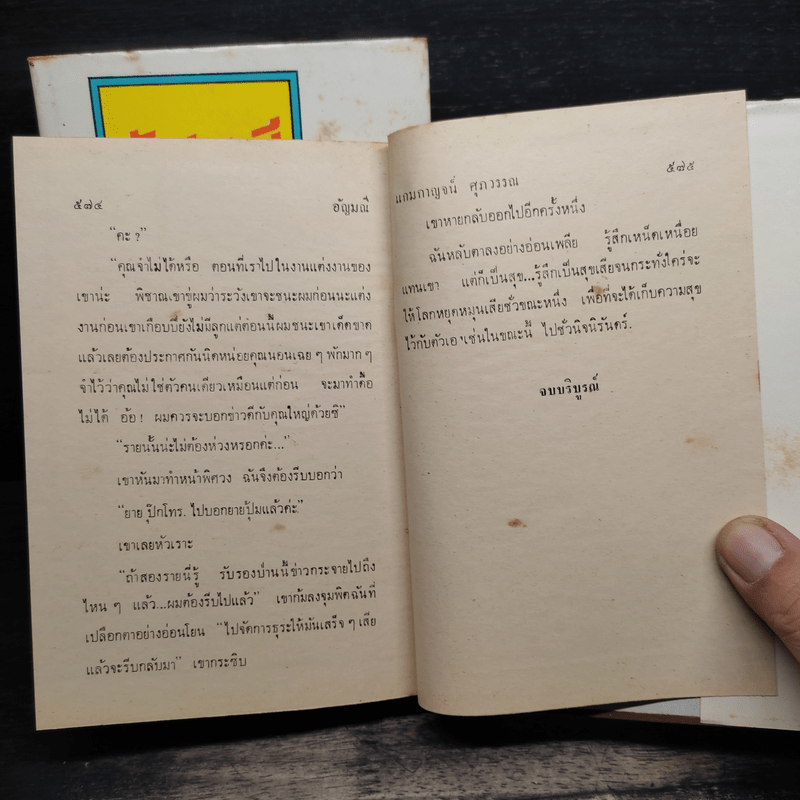 ๕๗๔
อัญมณี
"คะ ?"
"คุณจำไม่ได้หรือ ตอนที่เราไปในงานแต่งงานของ
เขาน่ะ พิชาณเขาขู่ผมว่าระวังเขาจะชนะผมก่อนนะแต่ง
งานก่อนเขาเกือบปียังไม่มีลูกแต่ตอนนี้ผมชนะเขาเด็ดขาด
แล้วเลยต้องประกาศกันนิดหน่อยคุณนอนเฉย ๆ พักมาก ๆ
จำไว้ว่าคุณไม่ใช่ตัวคนเดียวเหมือนแต่ก่อน จะมาทำดื้อ
ไม่ได้ อ้อ ! ผมควรจะบอกข่าวดีกับคุณใหญ่ด้วยซิ"
"รายนั้นน่ะไม่ต้องห่วงหรอกค่ะ..."
เขาหันมาทำหน้าพิศวง ฉันจึงต้องรีบบอกว่า
"ยาย ปุ๊กโทร. ไปบอกยายปุ้มแล้วค่ะ"
เขาเลยหัวเราะ
"ถ้าสองรายนี่รู้ รับรองป่านนี้ข่าวกระจายไปถึง
ไหน ๆ แล้ว...ผมต้องรีบไปแล้ว" เขาก้มลงจุมพิตฉันที่
เปลือกตาอย่างอ่อนโยน "ไปจัดการธุระให้มันเสร็จ ๆ เสีย
แล้วจะรีบกลับมา" เขากระซิบ
แถมกาญจน์ ศุภวรรณ
๕๗๕
เขาหายกลับออกไปอีกครั้งหนึ่ง
ฉันหลับตาลงอย่างอ่อนเพลีย รู้สึกเหน็ดเหนื่อย
แทนเขา แต่ก็เป็นสุข...รู้สึกเป็นสุขเสียจนกระทั่งใคร่จะ
ให้โลกหยุดหมุนเสียชั่วขณะหนึ่ง เพื่อที่จะได้เก็บความสุข
ไว้กับตัวเองเช่นในขณะนี้ ไปชั่วนิจนิรันดร์.
จบบริบูรณ์